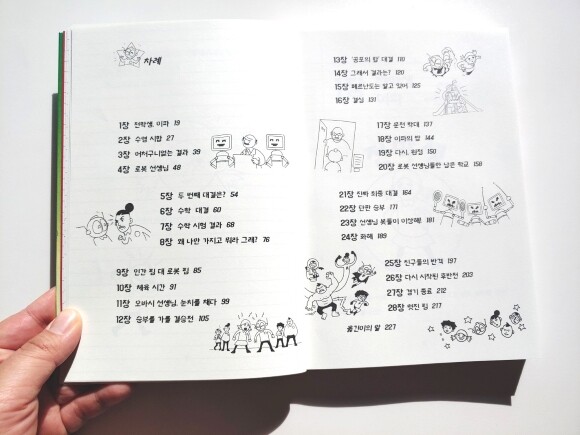 차례
1장 전학생, 이파 19
2장 수영 시합 27
3장 어처구니없는 결과 39
4장 로봇 선생님 48
5장 두 번째 대결은? 54
6장 수학 대결 60
7장 수학 시험 결과 68
8장 왜 나만 가지고 뭐라 그래? 76
9장 인간 팀 대 로봇 팀 85
10장 체육 시간 91
11장 오바시 선생님, 눈치를 채다 99
12장 승부를 가를 결승전 105
13장 '공포의 탑' 대결 110
14장 그래서 결과는? 120
15장 페르난도는 알고 있어 125
16장 결심 131
17장 운전 학대 137
18장 이파의 밤 144
19장 다시, 원점 150
20장 로봇 선생님들만 남은 학교 158
21장 진짜 최종 대결 164
22장 단판 승부 171
23장 선생님 봇들이 이상해! 181
24장 화해 189
25장 친구들의 반격 197
26장 다시 시작된 후반전 203
27장 경기 종료 212
28장 멋진 팀 217
옮긴이의 말 227